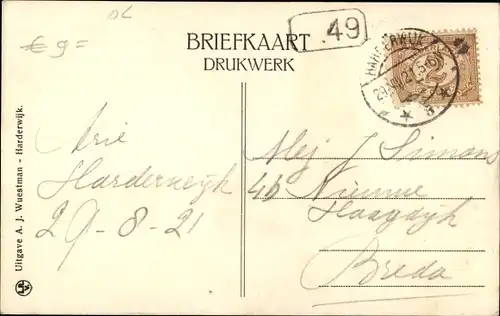 € 9=
49
BRIEFKAART
DRUKWERK
HARDERWIJK
Arie
Harderwijk
29-8-21
Mej J Simons
46 Nieuwe
Haagdijk
Breda
Uitgave A. J. Wuestman - Harderwijk.